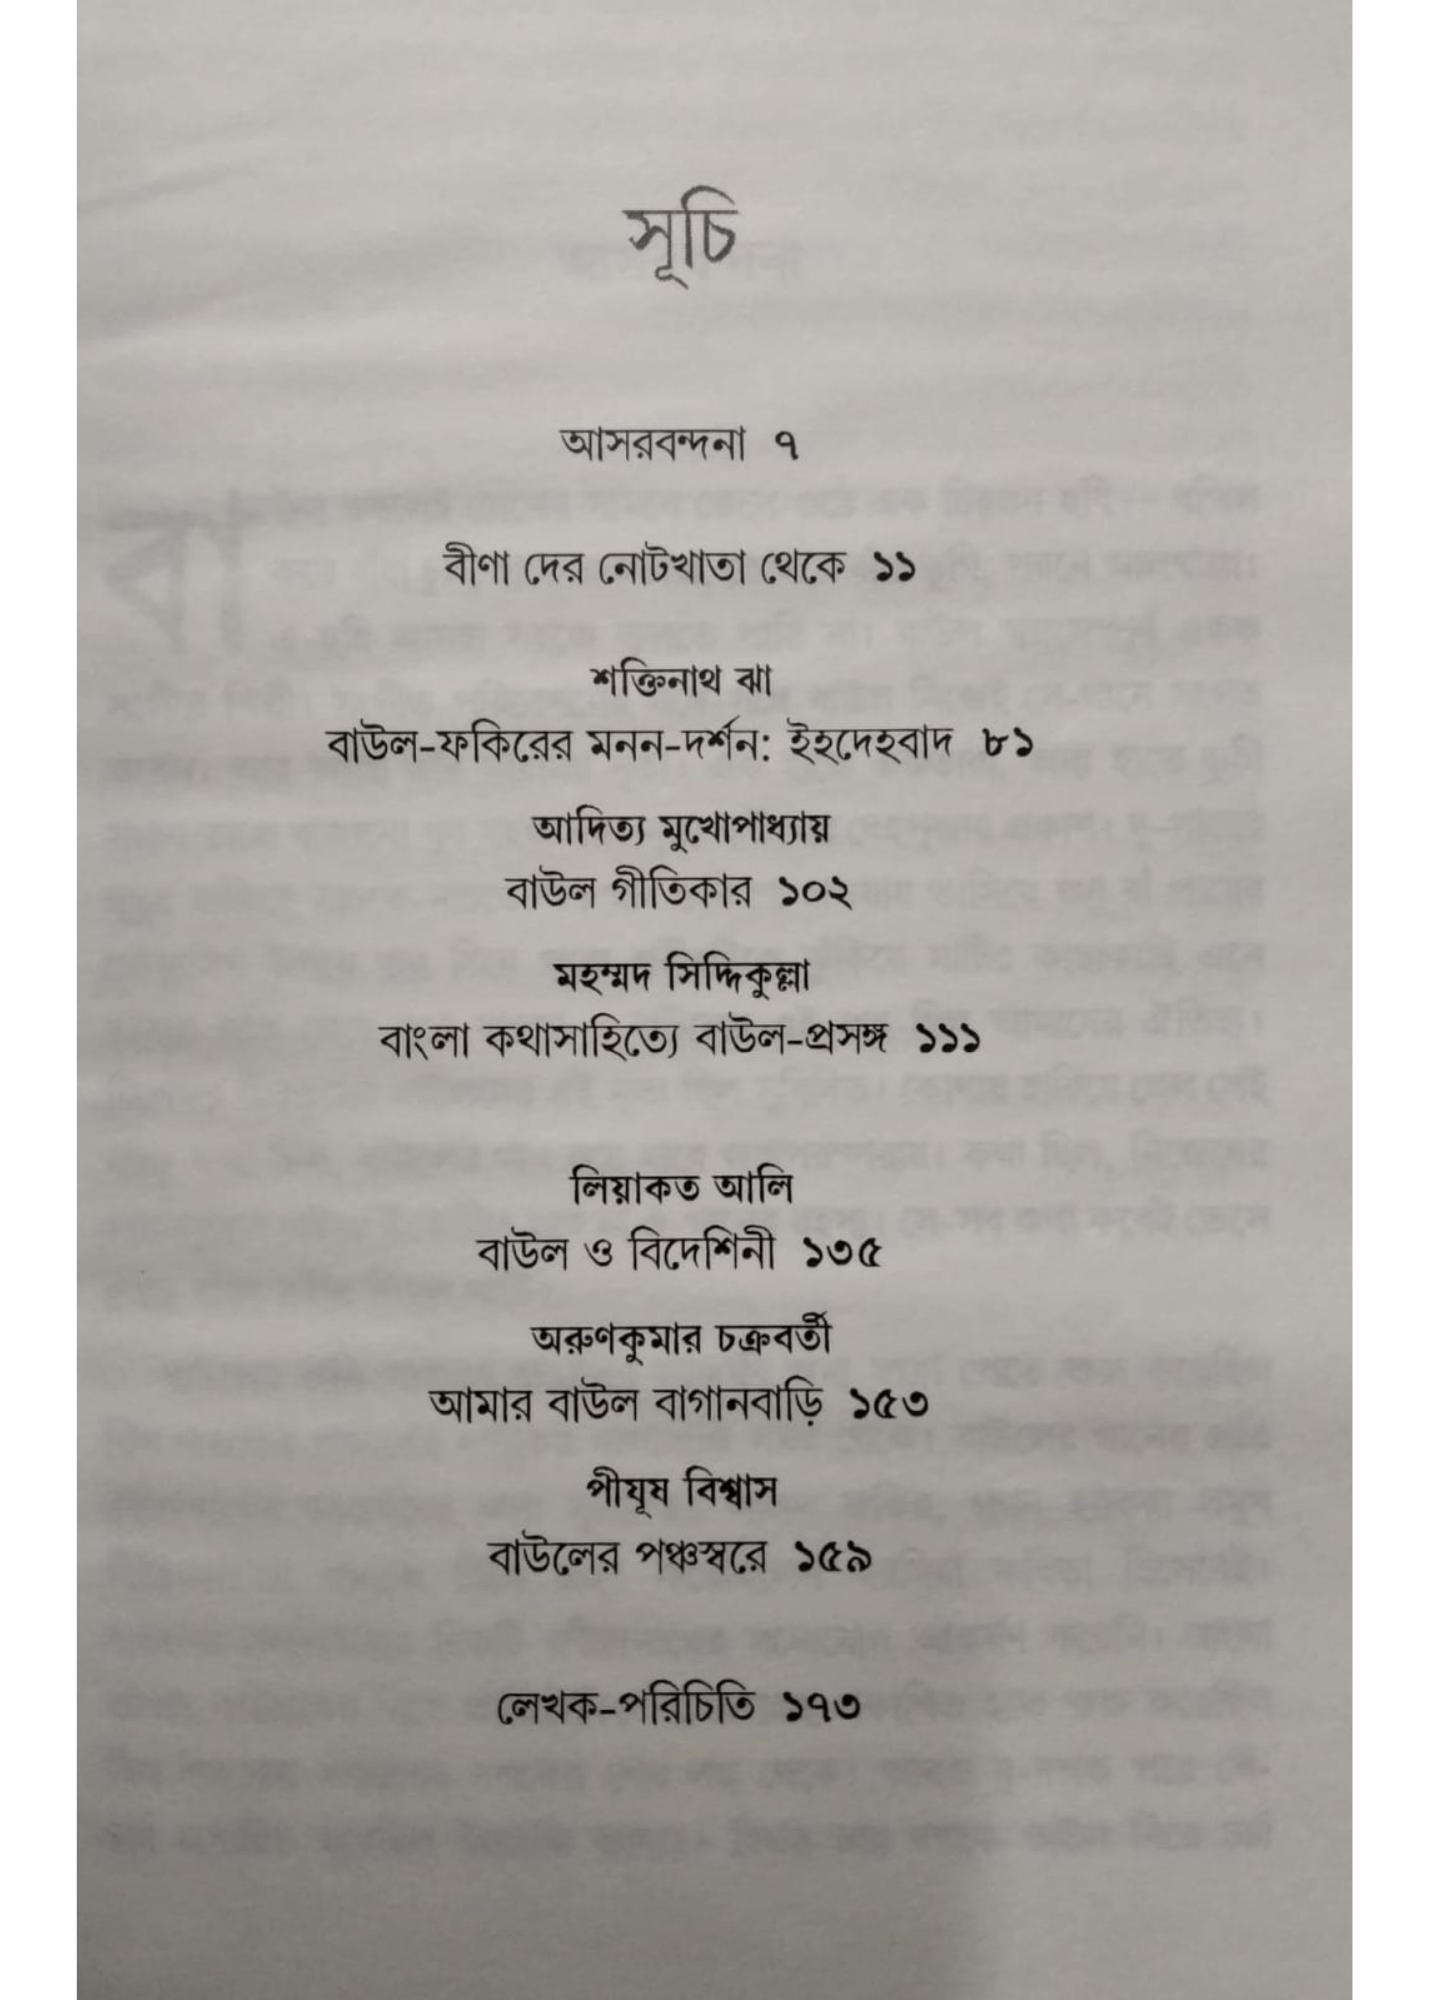 সূচি
আসরবন্দনা ৭
বীণা দের নোটখাতা থেকে ১১
শক্তিনাথ ঝা
বাউল-ফকিরের মনন-দর্শন: ইহদেহবাদ ৮১
আদিত্য মুখোপাধ্যায়
বাউল গীতিকার ১০২
মহম্মদ সিদ্দিকুল্লা
বাংলা কথাসাহিত্যে বাউল-প্রসঙ্গ ১১১
লিয়াকত আলি
বাউল ও বিদেশিনী ১৩৫
অরুণকুমার চক্রবর্তী
আমার বাউল বাগানবাড়ি ১৫৩
পীযূষ বিশ্বাস
বাউলের পঞ্চস্বরে ১৫৯
লেখক-পরিচিতি ১৭৩